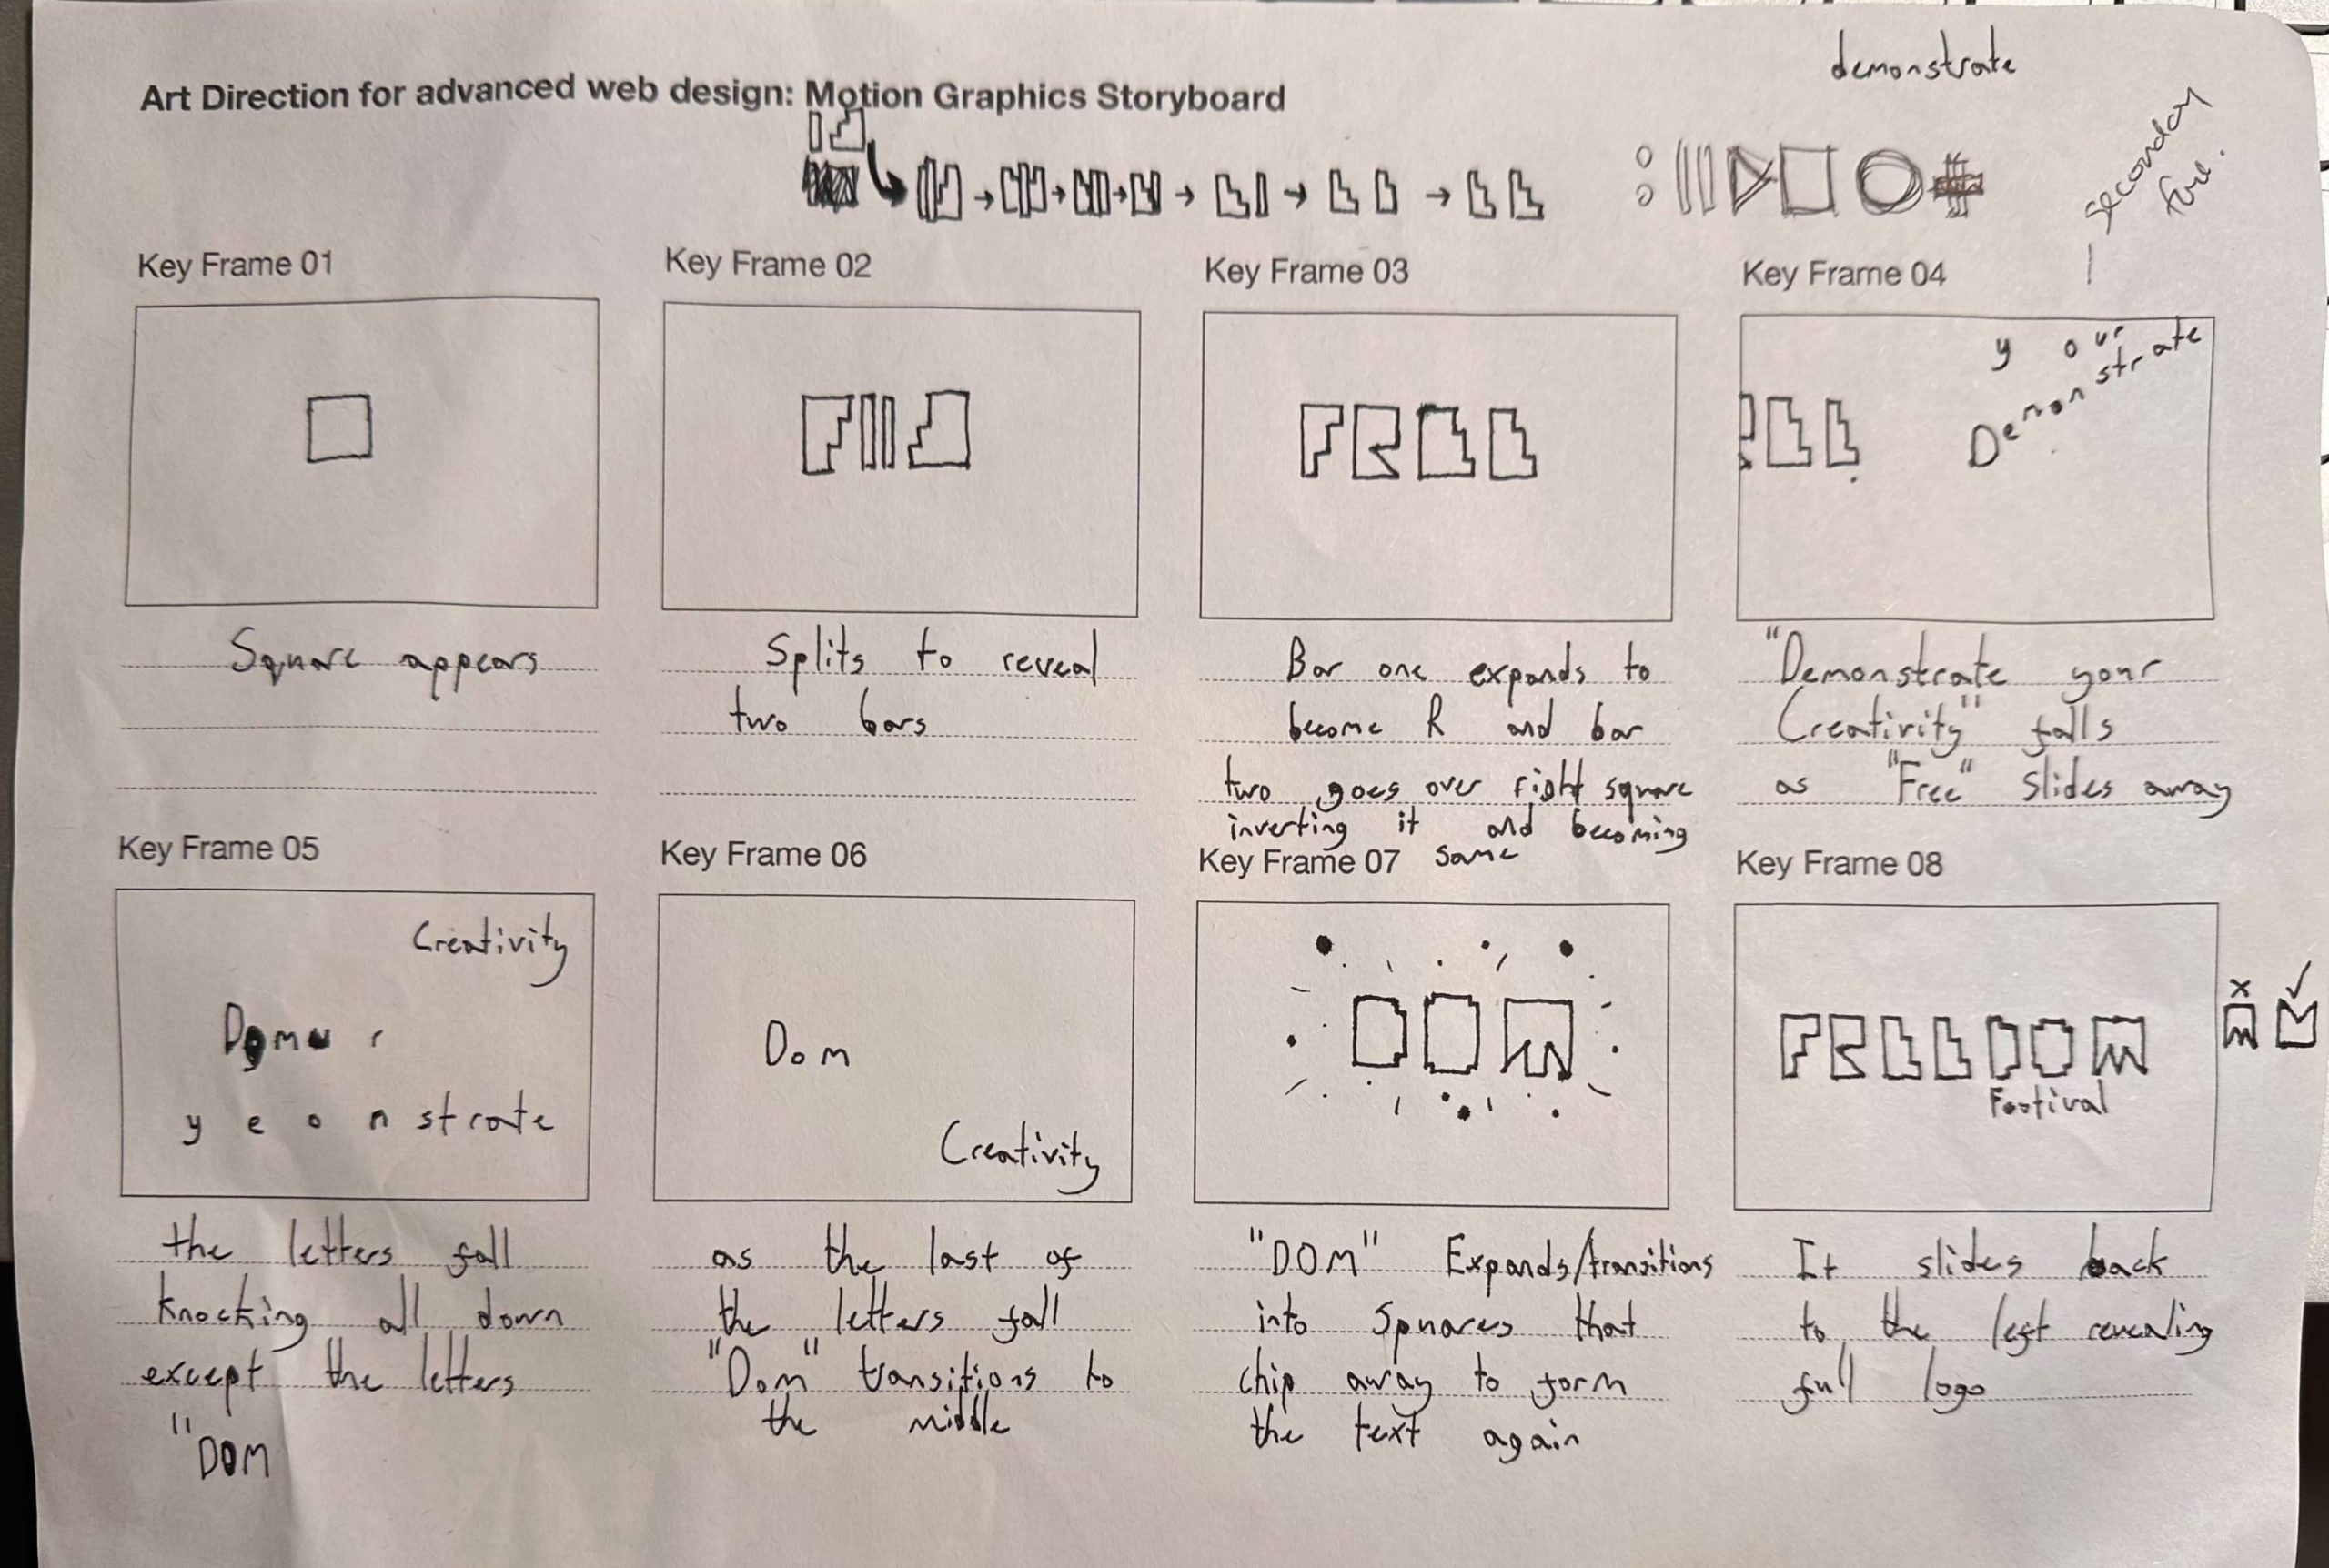 demonstrate
Art Direction for advanced web design: Motion Graphics Storyboard
Key Frame 01
Key Frame 02
Key Frame 03
Key Frame 04
FREE
y our
Demonstrate
Square appears
Splits to reveal
two bars
Bar one expands to
become R and bar
two goes over right square
inverting it and becoming
same
"Demonstrate your
Creativity" falls
as "Free" slides away
Key Frame 05
Key Frame 06
Key Frame 07
Key Frame 08
Creativity
y e o n strate
Dom
Creativity
DOM
FREEDOM
Festival
the letters fall
knocking all down
except the letters
"DOM
as the last of
the letters fall
"Dom" transitions to
the middle
"DOM" Expands/transitions
into Squares that
chip away to form
the text again
It slides back
to the left revealing
full logo